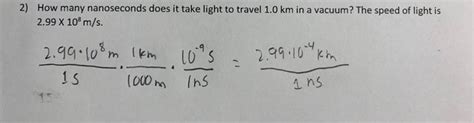 2) How many nanoseconds does it take light to travel 1.0 km in a vacuum? The speed of light is
2.99 X 10⁸ m/s.
2.99·10⁸ m / 1 s · 1 km / 1000 m · 10⁻⁹ s / 1 ns = 2.99·10⁻⁴ km / 1 ns